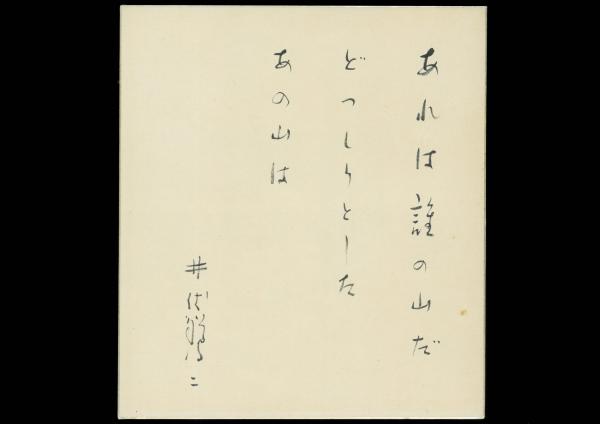 あれは誰の山だ
どつしりとした
あの山は
井伏鱒二